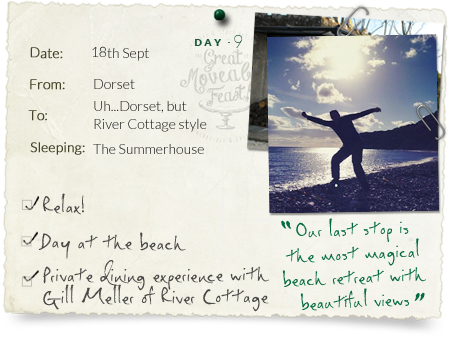 DAY - 9
Great
Moveable
Feast
Date: 18th Sept
From: Dorset
To: Uh...Dorset, but
River Cottage style
Sleeping: The Summerhouse
Relax!
Day at the beach
Private dining experience with
Gill Meller of River Cottage
"Our last stop is
the most magical
beach retreat with
beautiful views"